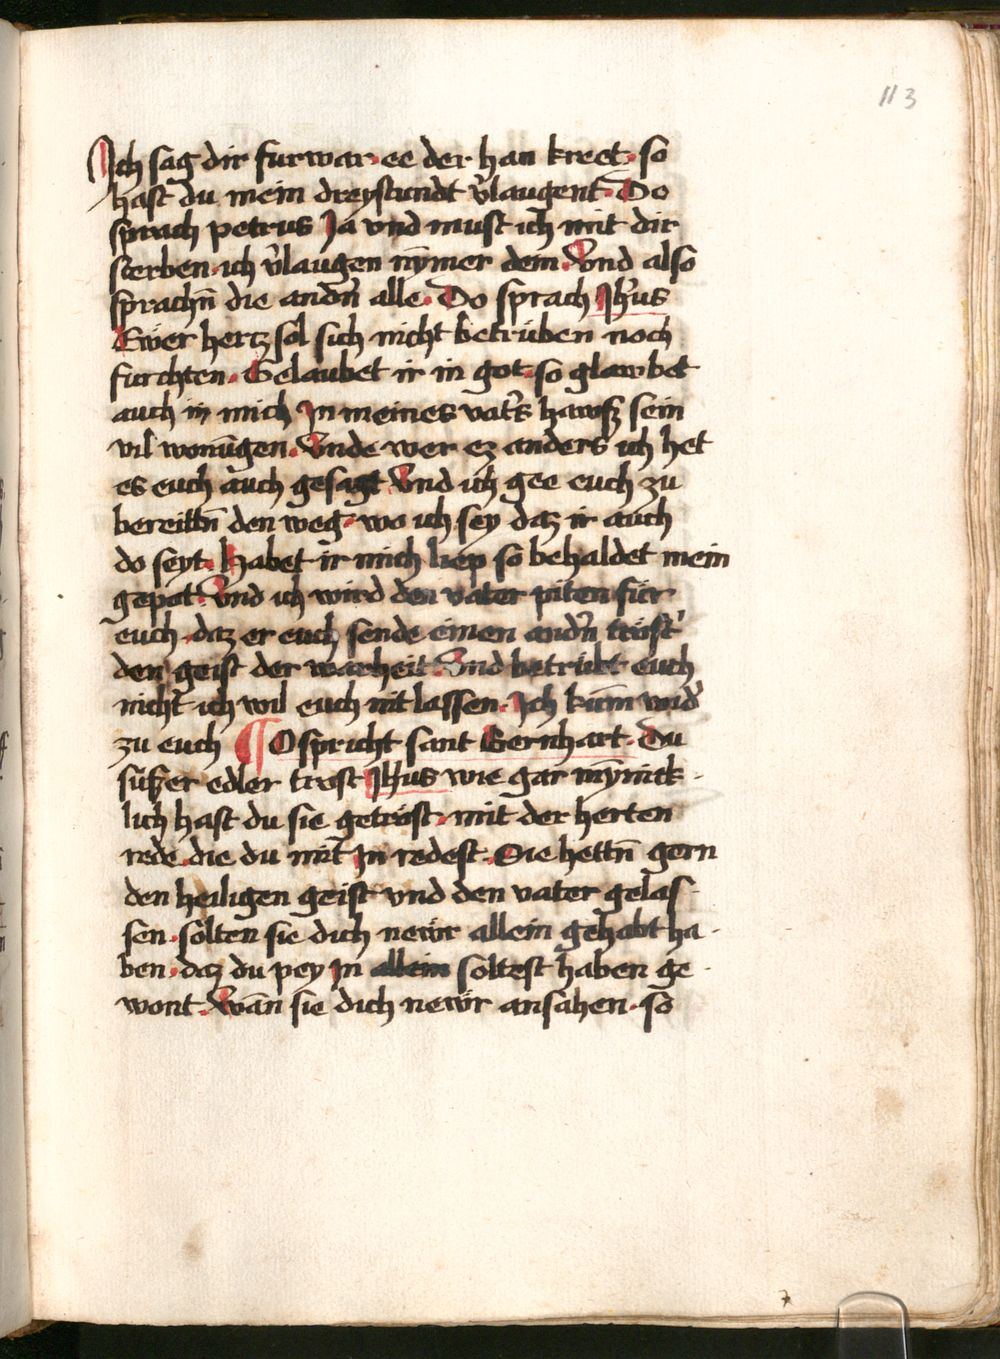 113
Ich sag dir furwar· ee der han kreet· so
hast du mein dreystundt v̾laugent· Do
sprach petrus Ja vnd must ich mit dir
sterben· ich v̾laugen nȳmer dein· Vnd also
sprachn̄ die andn̾ alle· Do sprach Jh̾us
Ewer hertz sol sich nicht betrüben noch
furchten· Gelaubet ir in got· so glawbet
auch in mich In meines vat̾s hawsz sein
vil wonūgen· Vnde wer ez anders ich het
es euch auch gesagt Vnd ich gee euch zu
bereittn̄ den weg· wo ich sey daz ir auch
do seyt· Habet ir mich liep so behaldet mein
gepot· Vnd ich wird den vater piten für
euch· daz er euch sende einen andn̾ tröst̾
den geist der warheit Vnd betrübt euch
nicht ich wil euch nit lassen· Ich kūm wid̾
zu euch ¶ O spricht sant Bernhart· Du
süszer edler trost Jh̾us wie gar mȳnick·
lich hast du sie getröst· mit der herten
rede die du mit In redest· Sie hettn̄ gern
den heiligen geist vnd den vater gelas·
sen· solten sie dich newr allein gehabt ha·
ben· daz du pey In allein soltest haben ge·
wont· Wan sie dich newr ansahen· so
7